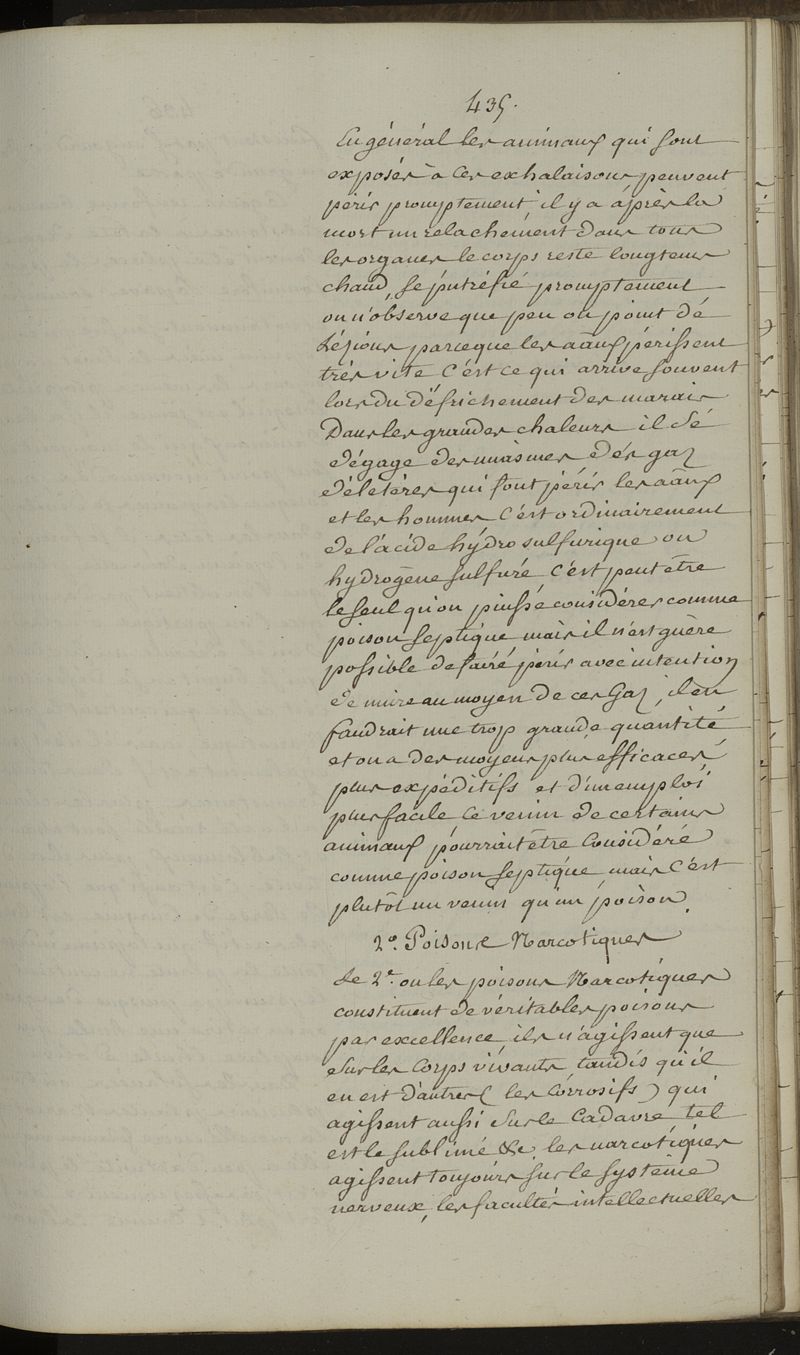 435.
En général les animaux qui sont
exposés à ces exhalaisons peuvent
périr promptement il y a après la
mort un relachement dans tous
les organes le corps reste longtems
chaud, se putréfié promptement
on n'observe que peu ou point dé
Lésions parceque les aãux périssent
très vite C'ést ce qui arrive souvent
lors du défrichement des marais
Dans les grandes chaleurs il sé
dégage des miasmes, dés gaz
délétères qui font périr les aãux
et les hommes C'ést ordinairement
de l'acide hydro sulfurique ou
hydrogène sulfuré, c'ést peut être
le seul qu'on puissé considérer comme
poison septique mais il n'est guère
possible de fairé périr avec intention
de nuire au moyen de ces Gaz, il en
faudrait une trop grande quantité
et on a des moyens plus efficaces
plus expéditifs et d'un emploi
plus facile Le venin de certains
animaux pourrait être Considéré
comme poison septique mais C'ést
plutôt un venin qu'un poison.
2º. Poisons Narcotiques
Le 2e. ou les poisons Narcotiques
constituent de véritables poisons
par excellence, ils n'agissent que
sur les Corps vivants, tandis qu'il
en est d'autres (les Corrosifs) qui
agissent aussi sur le Cadavre, tel
est le sublimé &c. les narcotiques
agissent toujours sur le système
nerveux, les facultés intellectuelles